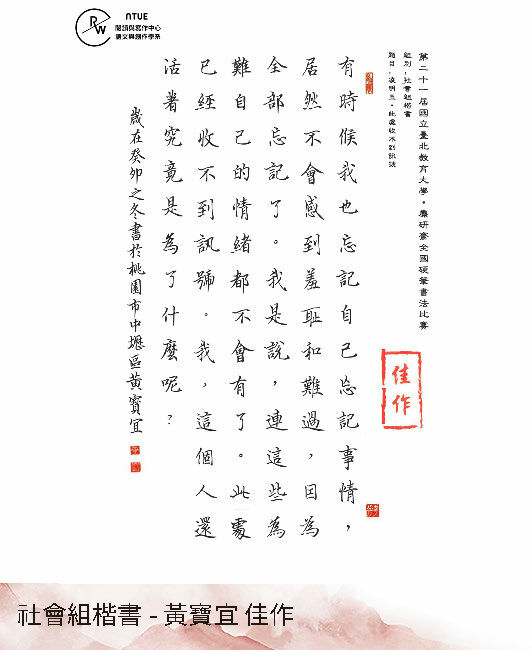 RW
NTUE
閱讀與寫作中心
語文與創作學系
第二十一屆國立臺北教育大學。麋研齋全國硬筆書法比賽
組別:社會組楷書
題目:凌明玉,此處收不到訊號
有時候我也忘記自己忘記事情,
居然不會感到羞耻和難過,因為
全部忘記了。我是說,連這些為
難自己的情緒都不會有了。此處
已經收不到訊號。我,這個人還
活著究竟是為了什麼呢?
歲在癸卯之冬書於桃園市中壢區黃寶宜
佳作
社會組楷書 - 黃寶宜 佳作